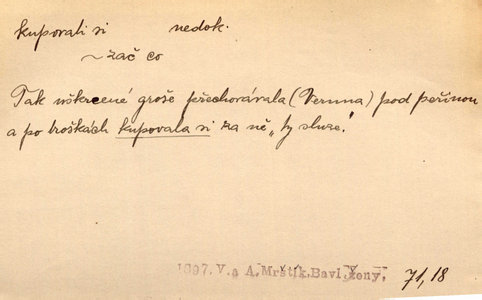 kupovati si nedok.
~ zač co
Tak uškrcené groše přechovávala (Veruna) pod peřinou
a po troškách kupovala si za ně „ty sluze."
1897. V. a A. Mrštík. Bavl. ženy. 71, 18